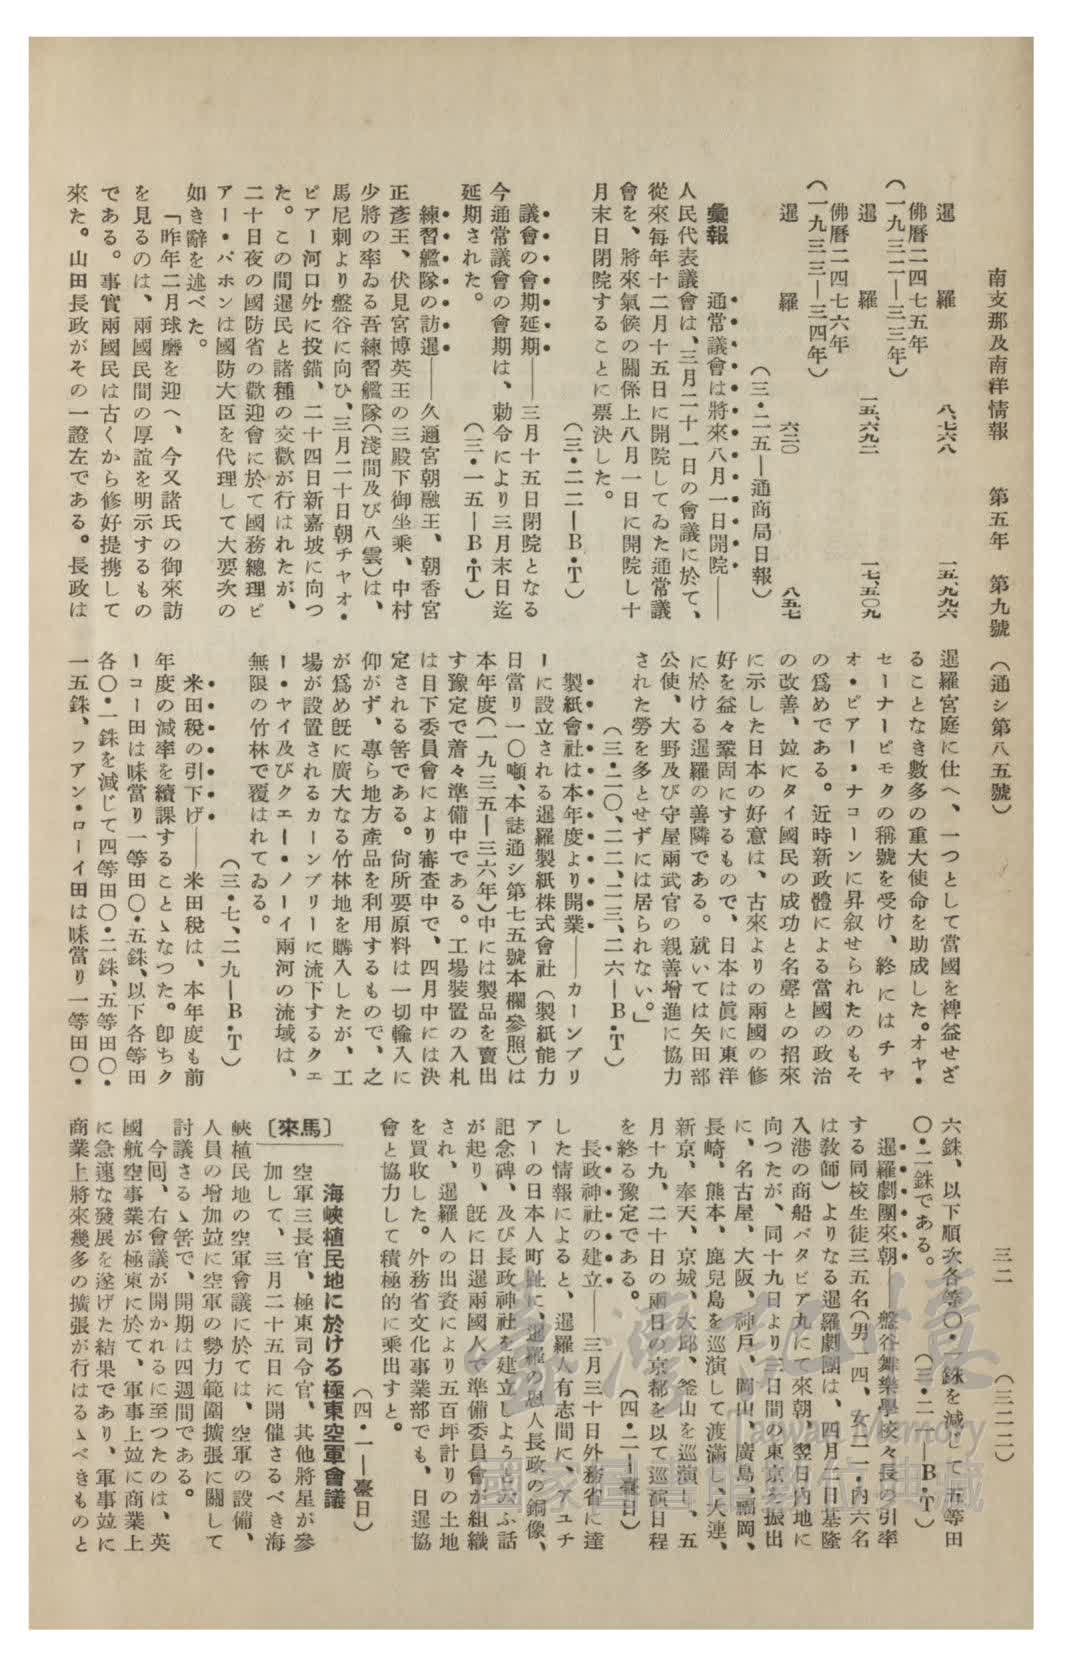 南支那及南洋情報　第五年　第九號　（通シ第八五號）　三二　（三二二）
暹　羅　八、七六八　一五、九九六
佛曆二四七五年
（一九三二—三三年）
暹　羅　一五、六九二　一七、五〇九
佛曆二四七六年
（一九三三—三四年）
暹　羅　六三〇　八五七
（三・二五—通商局日報）
彙報　通常議會は將來八月一日開院——
人民代表議會は、三月二十一日の會議に於て、
從來每年十二月十五日に開院してゐた通常議
會を、將來氣候の關係上八月一日に開院し十
月末日閉院することに票決した。
（三・二二—B・T）
議會の會期延期——三月十五日閉院となる
今通常議會の會期は、勅令により三月末日迄
延期された。　（三・一五—B・T）
練習艦隊の訪暹——久邇宮朝融王、朝香宮
正彥王、伏見宮博英王の三殿下御坐乘、中村
少將の率ゐる吾練習艦隊（淺間及び八雲）は、
馬尼刺より盤谷に向ひ、三月二十日朝チャオ・
ピアー河口外に投錨、二十四日新嘉坡に向つ
た。この間暹民と諸種の交歡が行はれたが、
二十日夜の國防省の歡迎會に於て國務總理ピ
アー・パホンは國防大臣を代理して大要次の
如き辭を述べた。
「昨年二月球磨を迎へ、今又諸氏の御來訪
を見るのは、兩國民間の厚誼を明示するもの
である。事實兩國民は古くから修好提携して
來た。山田長政がその一證左である。長政は
暹羅宮庭に仕へ、一つとして當國を裨益せざ
ることなき數多の重大使命を助成した。オヤ・
セーナーピモクの稱號を受け、終にはチャ
オ・ピアー・ナコーンに昇叙せられたのもそ
の爲めである。近時新政體による當國の政治
の改善、竝にタイ國民の成功と名聲との招來
に示した日本の好意は、古來よりの兩國の修
好を益々鞏固にするもので、日本は眞に東洋
に於ける暹羅の善隣である。就いては矢田部
公使、大野及び守屋兩武官の親善增進に協力
された勞を多とせずには居られない。」
（三・二〇、二二、二三、二六—B・T）
製紙會社は本年度より開業——カーンブリ
ーに設立される暹羅製紙株式會社（製紙能力
日當り一〇噸、本誌通シ第七五號本欄參照）は
本年度（一九三五—三六年）中には製品を賣出
す豫定で着々準備中である。工場裝置の入札
は目下委員會により審査中で、四月中には決
定される筈である。尙所要原料は一切輸入に
仰がず、專ら地方產品を利用するもので、之
が爲め既に廣大なる竹林地を購入したが、工
場が設置されるカーンブリーに流下するクェ
ー・ヤイ及びクェー・ノーイ兩河の流域は、
無限の竹林で覆はれてゐる。
（三・七、二九—B・T）
米田稅の引下げ——米田稅は、本年度も前
年度の減率を續課することゝなつた。卽ちク
ーコー田は味當り一等田〇・五銖、以下各等田
各〇・一銖を減じて四等田〇・二銖、五等田〇・
一五銖、フアン・ローイ田は味當り一等田〇・
六銖、以下順次各等〇・一銖を減じて五等田
〇・二銖である。　（三・二一—B・T）
暹羅劇團來朝——盤谷舞樂學校々長の引率
する同校生徒三五名（男一四、女二一・內六名
は敎師）よりなる暹羅劇團は、四月二日基隆
入港の商船バタビア丸にて來朝、翌日內地に
向つたが、同十九日より三日間の東京を振出
に、名古屋、大阪、神戶、岡山、廣島、福岡、
長崎、熊本、鹿兒島を巡演して渡滿し、大連、
新京、奉天、京城、大邱、釜山を巡演し、五
月十九、二十日の兩日の京都を以て巡演日程
を終る豫定である。　（四・二—臺日）
長政神社の建立——三月三十日外務省に達
した情報によると、暹羅人有志間に、アユチ
アーの日本人町趾に、暹羅の恩人長政の銅像、
記念碑、及び長政神社を建立しようといふ話
が起り、旣に日暹兩國人で準備委員會が組織
され、暹羅人の出資により五百坪計りの土地
を買收した。外務省文化事業部でも、日暹協
會と協力して積極的に乘出すと。
（四・一—臺日）
〔馬來〕
海峽植民地に於ける極東空軍會議
空軍三長官、極東司令官、其他將星が參
加して、三月二十五日に開催さるべき海
峽植民地の空軍會議に於ては、空軍の設備、
人員の增加竝に空軍の勢力範圍擴張に關して
討議さるゝ筈で、開期は四週間である。
今囘、右會議が開かれるに至つたのは、英
國航空事業が極東に於て、軍事上竝に商業上
に急速な發展を遂げた結果であり、軍事竝に
商業上將來幾多の擴張が行はるゝべきものと
臺灣記憶
Taiwan Memory
國家圖書館數位典藏